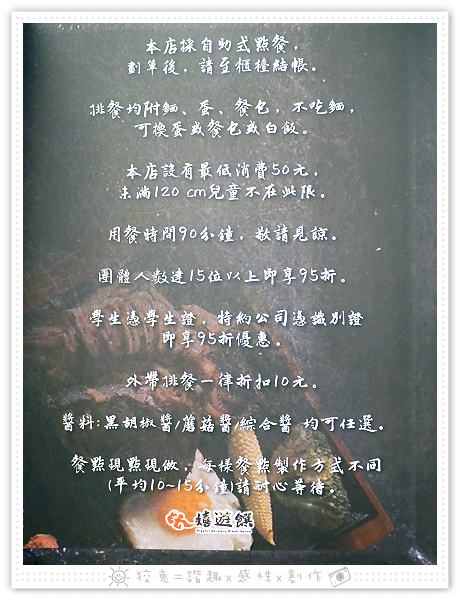 本店採自助式點餐，
劃單後，請至櫃檯結帳。
排餐均附麵、蛋、餐包，不吃麵，
可換蛋或餐包或白飯。
本店設有最低消費50元，
未滿120 cm兒童不在此限。
用餐時間90分鐘，敬請見諒。
團體人數達15位以上即享95折。
學生憑學生證，特約公司憑識別證
即享95折優惠。
外帶排餐一律折扣10元。
醬料:黑胡椒醬/蘑菇醬/綜合醬 均可任選。
餐點現點現做，每樣餐點製作方式不同
(平均10~15分鐘)請耐心等待。
嬉遊饌
狡兔=諧趣x感性x創作